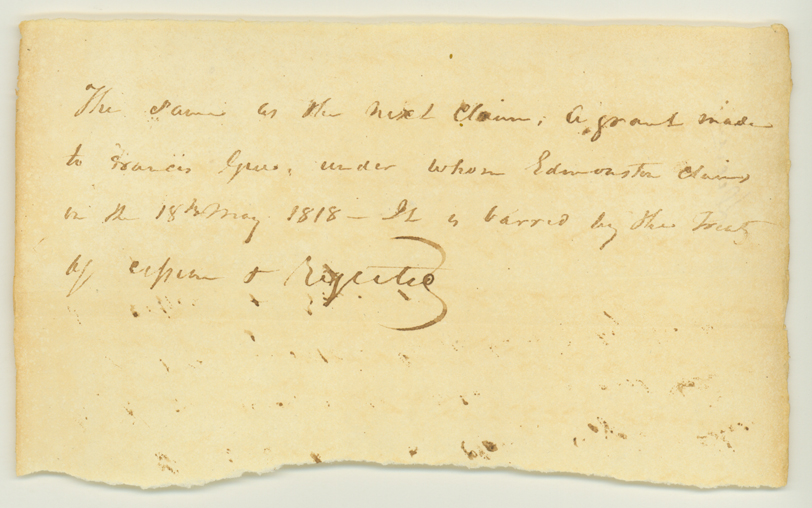 The same as the next claim, A grant made
to Francis under whom Edmonston claims
on the 18th May 1818 — It is barred by the Treaty
of cession & Rejected